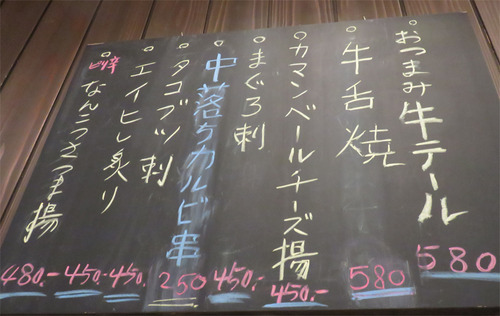 おつまみ牛テール 580
牛舌焼 580
カマンベールチーズ揚 450.-
まぐろ刺 450.-
中落ちカルビ串 250
タコブツ刺 450.-
エイヒレ炙り 450.-
ピリ辛なんこつさつま揚 480.-